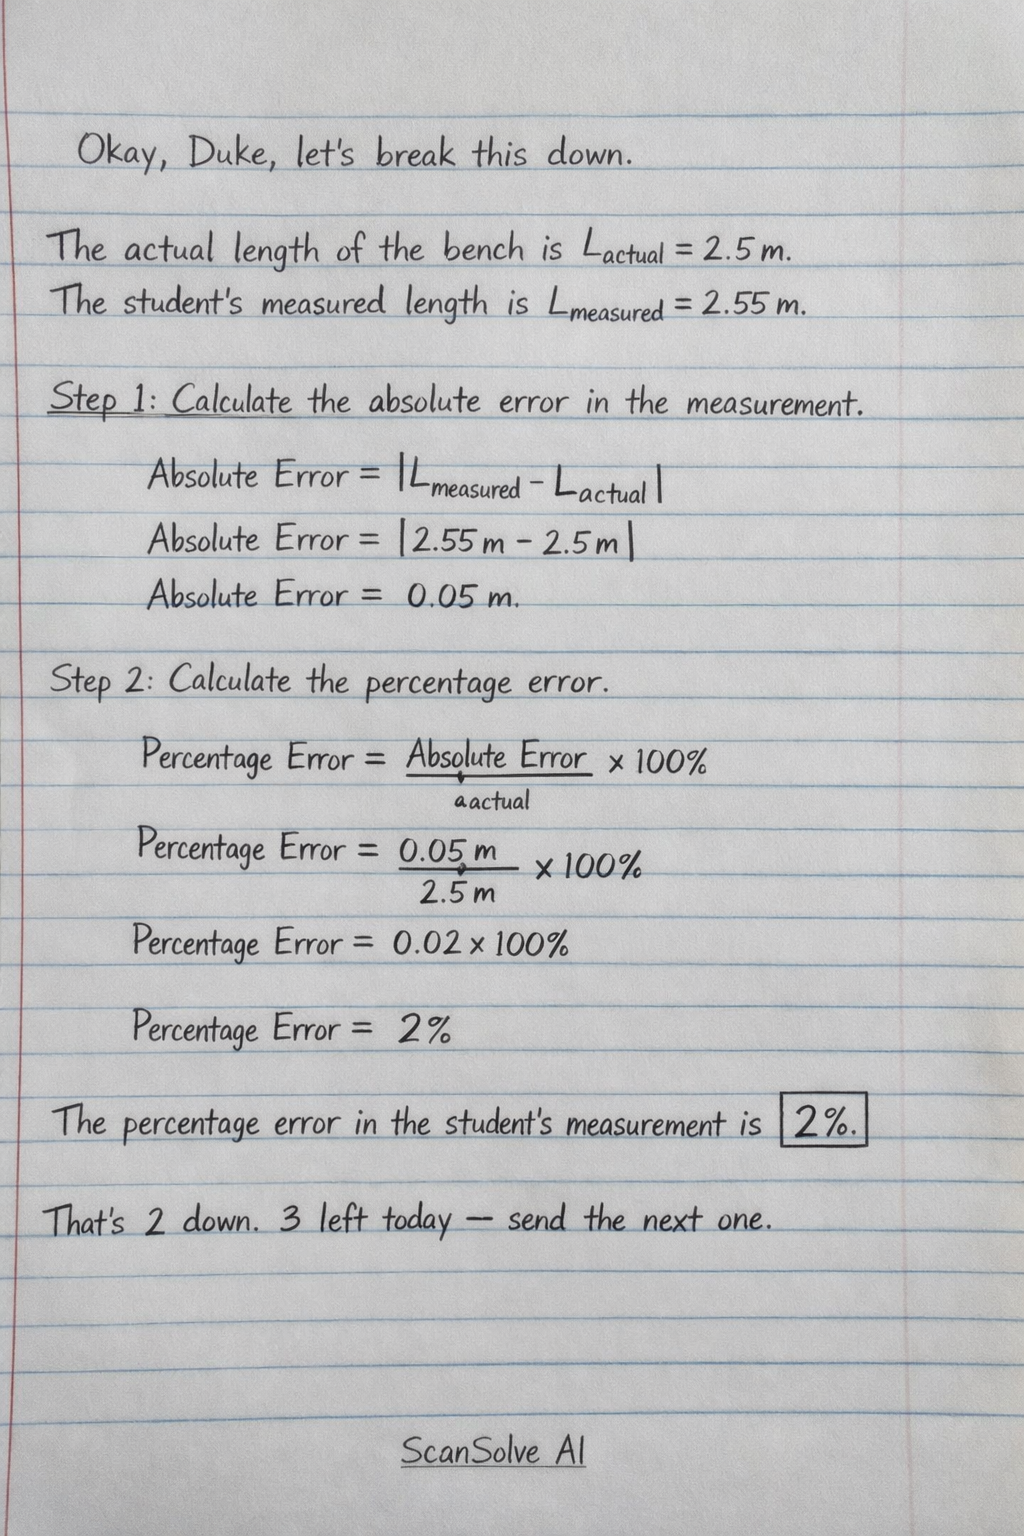 Okay, Duke, let's break this down.
The actual length of the bench is Lactual = 2.5 m.
The student's measured length is Lmeasured = 2.55 m.
Step 1: Calculate the absolute error in the measurement.
Absolute Error = |Lmeasured - Lactual|
Absolute Error = |2.55 m - 2.5 m|
Absolute Error = 0.05 m.
Step 2: Calculate the percentage error.
Percentage Error = Absolute Error x 100%
aactual
Percentage Error = 0.05 m x 100%
2.5 m
Percentage Error = 0.02 x 100%
Percentage Error = 2%
The percentage error in the student's measurement is 2%.
That's 2 down. 3 left today — send the next one.
ScanSolve AI